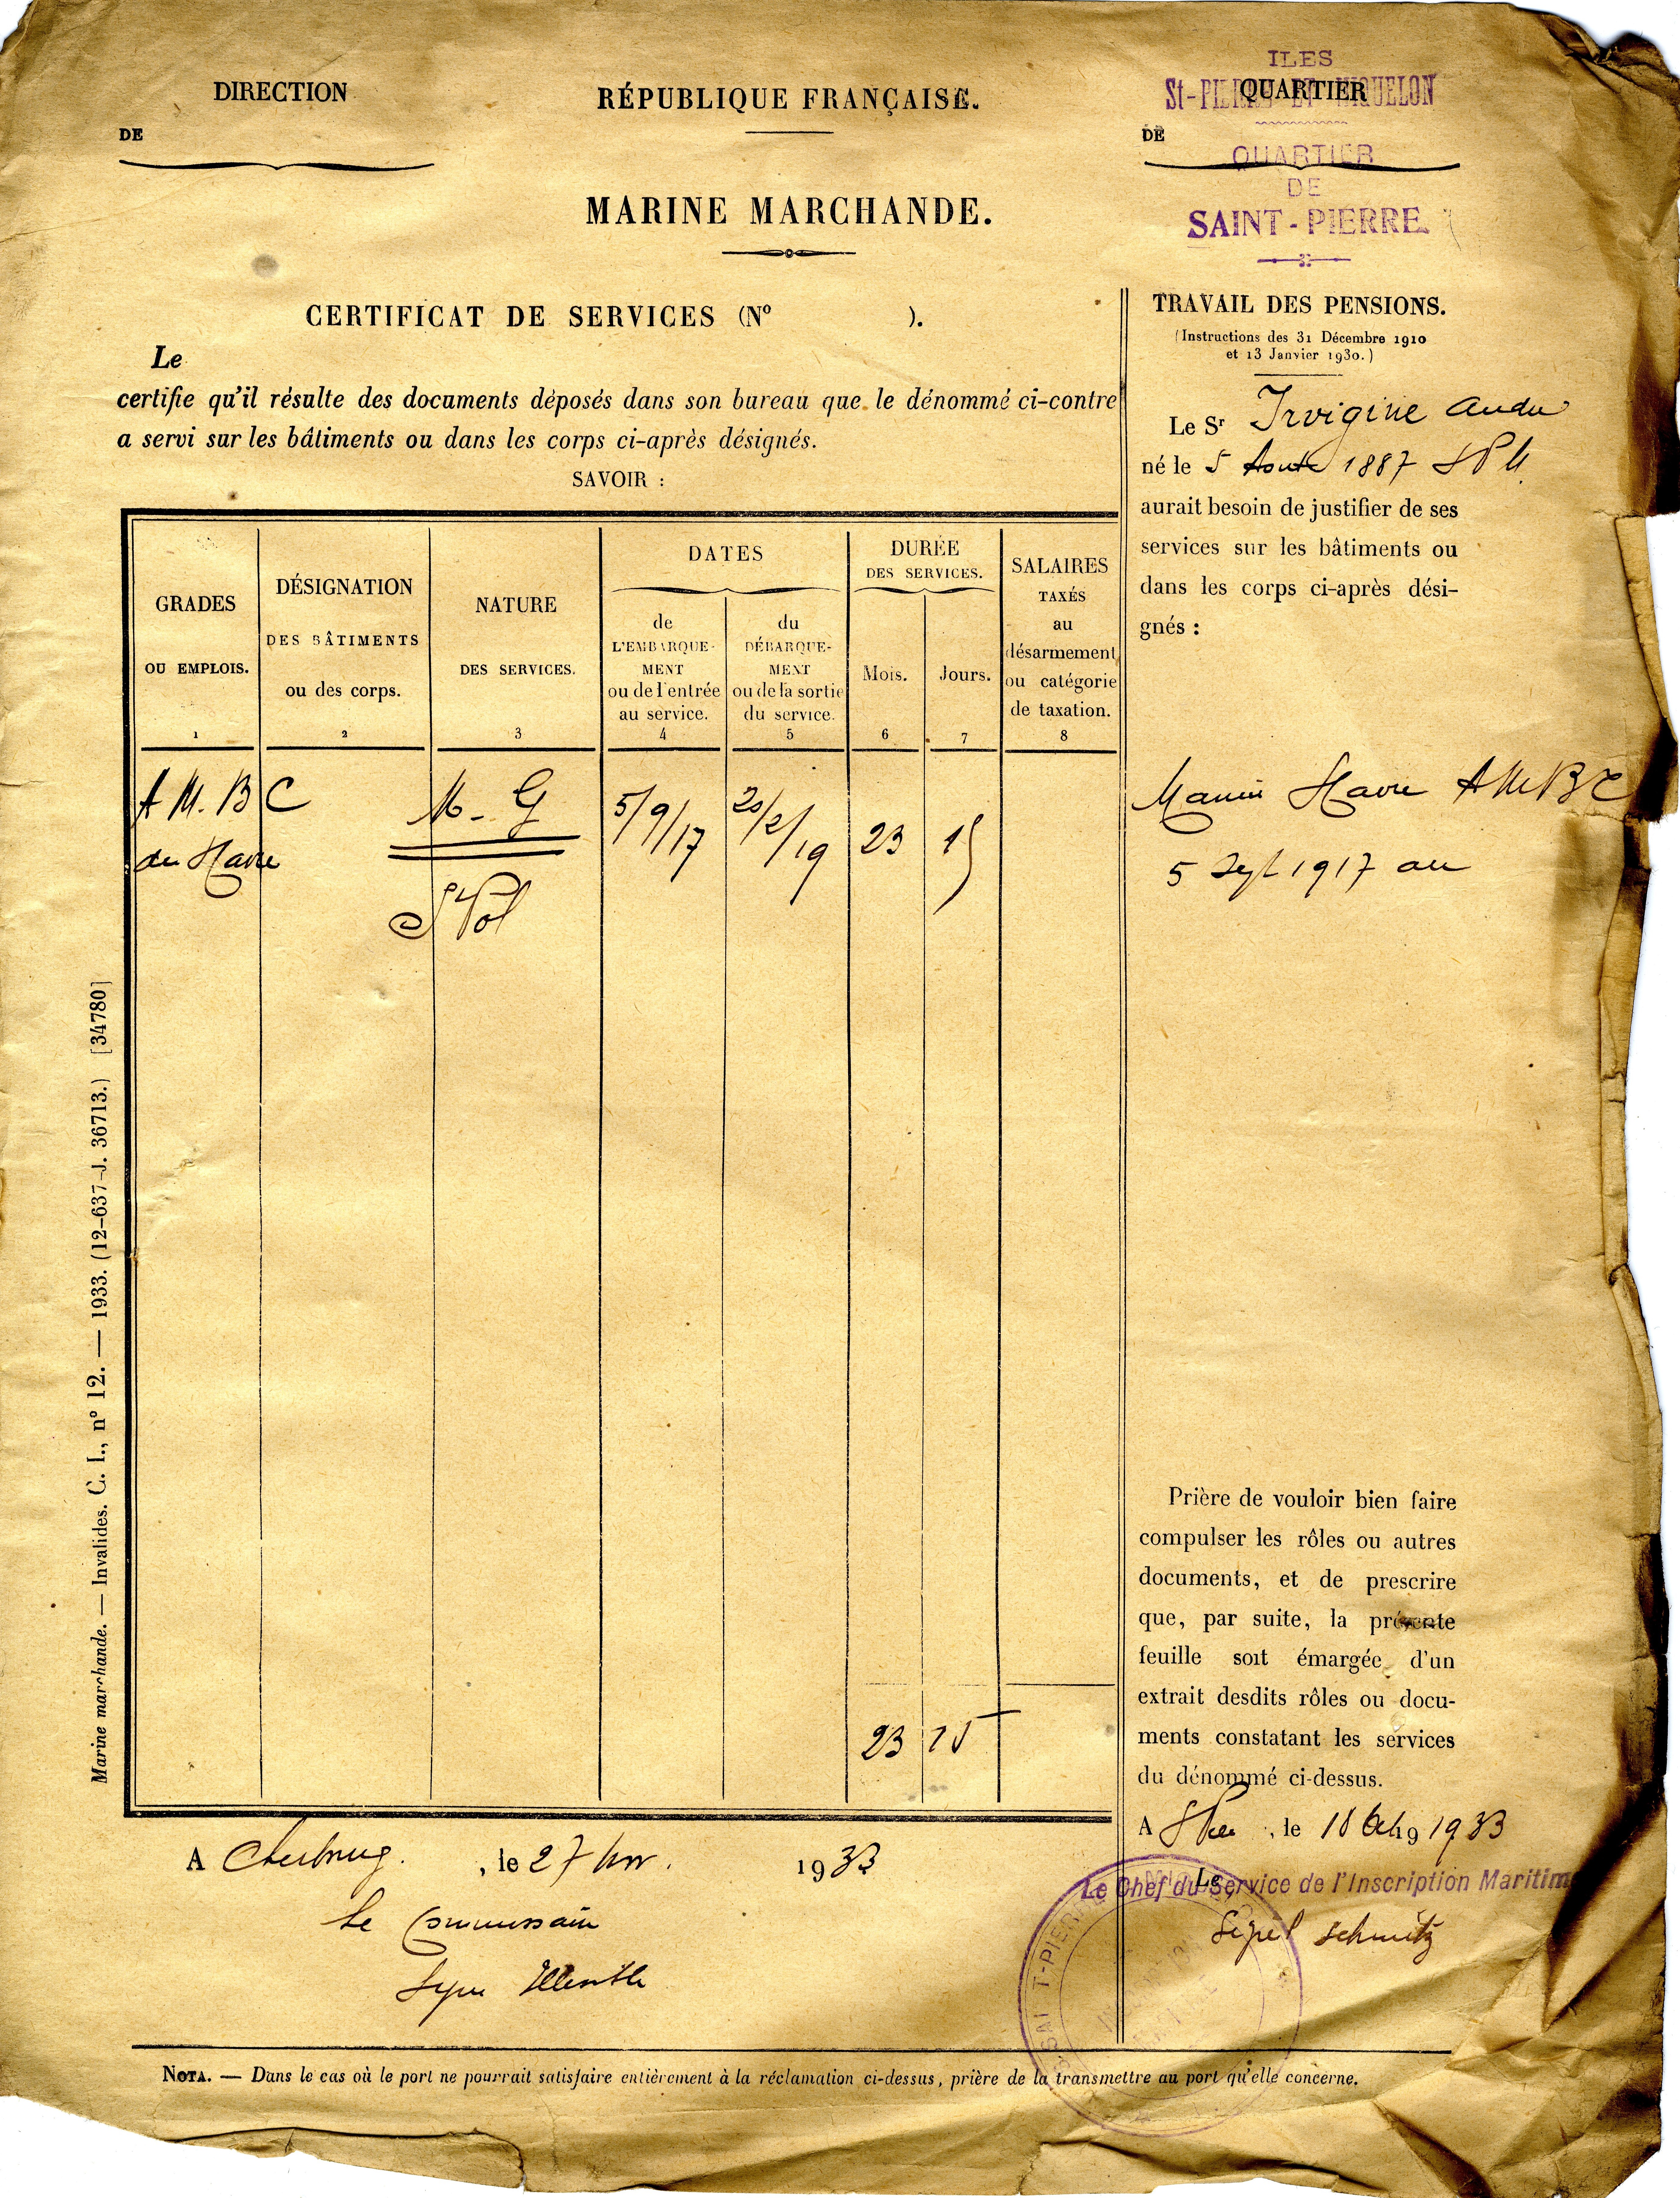 DIRECTION
DE
RÉPUBLIQUE FRANÇAISE.
MARINE MARCHANDE.
ILES
St-PIERRE ET MIQUELON
QUARTIER
DE
QUARTIER
DE
SAINT-PIERRE
CERTIFICAT DE SERVICES (Nº ).
Le
certifie qu'il résulte des documents déposés dans son bureau que le dénommé ci-contre
a servi sur les bâtiments ou dans les corps ci-après désignés.
SAVOIR :
GRADES
OU EMPLOIS.
1
DÉSIGNATION
DES BÂTIMENTS
ou des corps.
2
NATURE
DES SERVICES.
3
DATES
de
L'EMBARQUE-
MENT
ou de l'entrée
au service.
4
du
DÉBARQUE-
MENT
ou de la sortie
du service.
5
DURÉE
DES SERVICES.
Mois.
6
Jours.
7
SALAIRES
TAXÉS
au
désarmement
ou catégorie
de taxation.
8
A M. B C M. G 5/9/17 20/2/19 23 15
du Havre
St Pol
23 15
A Cherbourg. , le 27 Nov. 1933
Le Commissaire
Signé
TRAVAIL DES PENSIONS.
(Instructions des 31 Décembre 1910
et 13 Janvier 1930.)
Le Sr Irvigine
né le 5 Août 1887
aurait besoin de justifier de ses
services sur les bâtiments ou
dans les corps ci-après dési-
gnés :
Marine Havre AMBC
5 Sept 1917 au
Prière de vouloir bien faire
compulser les rôles ou autres
documents, et de prescrire
que, par suite, la présente
feuille soit émargée d'un
extrait desdits rôles ou docu-
ments constatant les services
du dénommé ci-dessus.
A , le 18 1933
Le
Le Chef du Service de l'Inscription Maritime
Signé Schmitz
NOTA. — Dans le cas où le port ne pourrait satisfaire entièrement à la réclamation ci-dessus, prière de la transmettre au port qu'elle concerne.
Marine marchande. — Invalides. C. I., nº 12. — 1933. (12-637-J. 36713.) [34780]